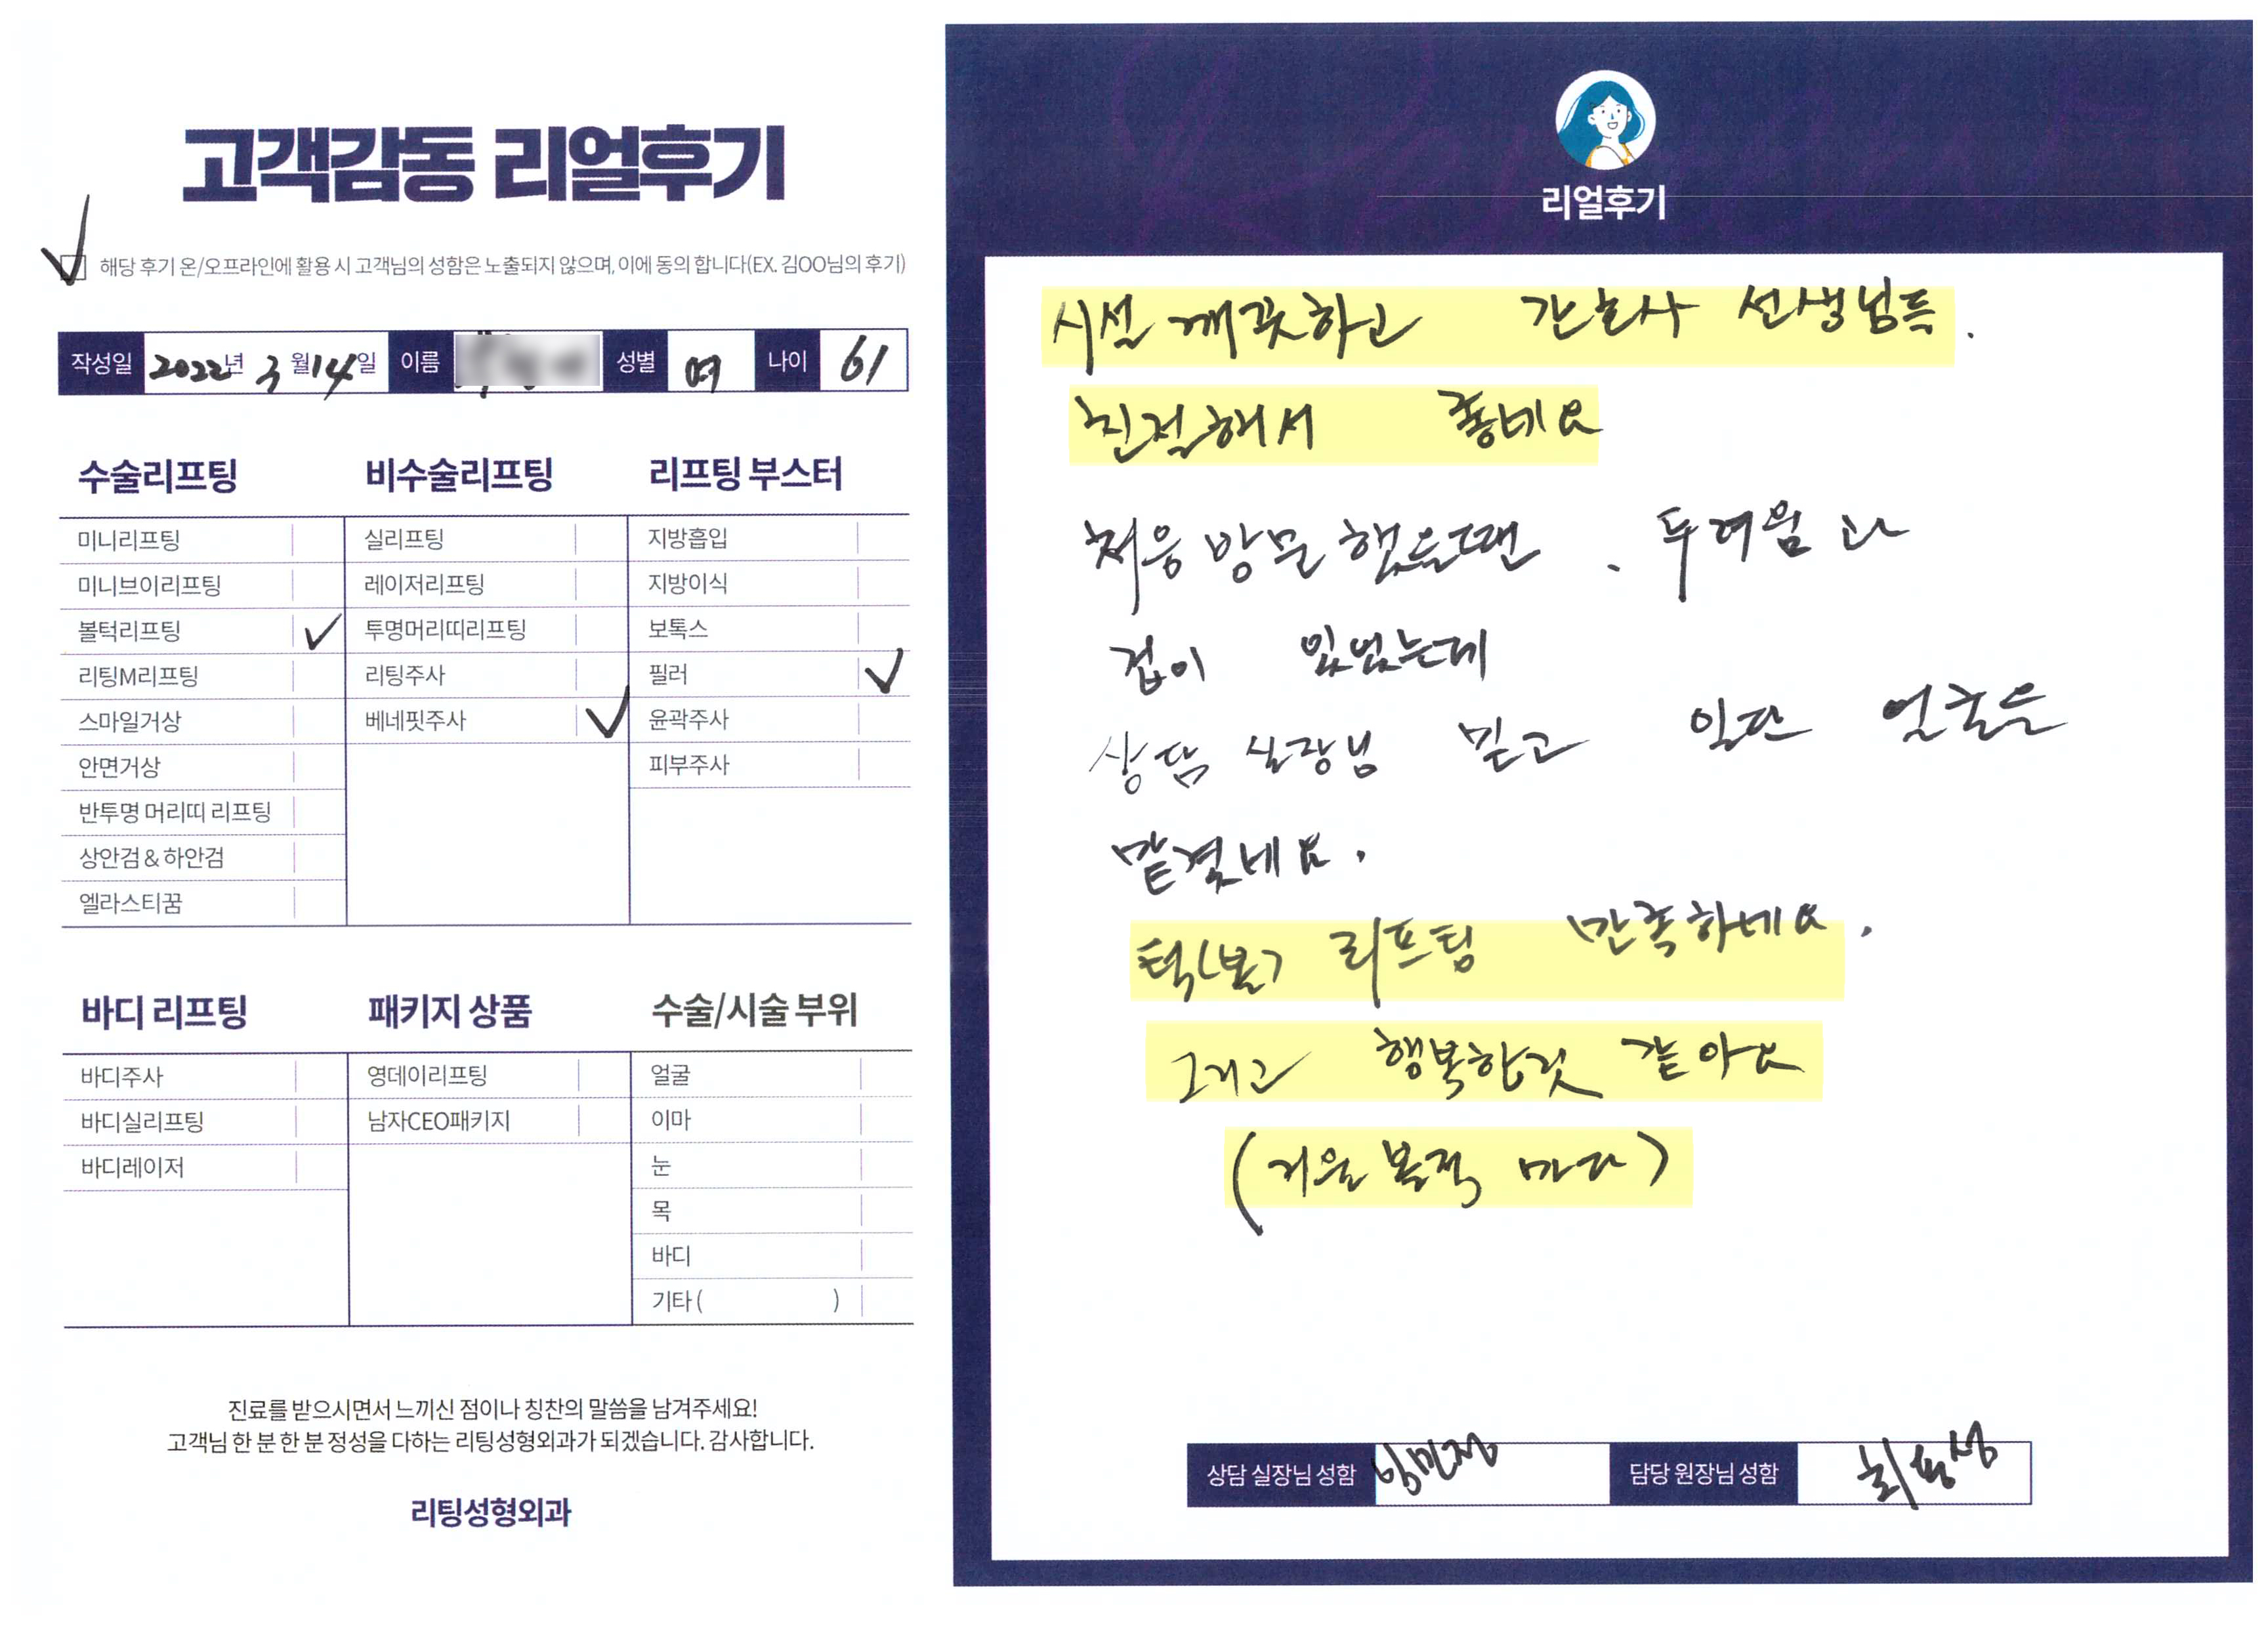 고객감동 리얼후기
해당 후기 온/오프라인에 활용 시 고객님의 성함은 노출되지 않으며, 이에 동의 합니다(EX. 김OO님의 후기)
작성일 2022년 3월 14일 이름 성별 여 나이 61
수술리프팅
미니리프팅
미니브이리프팅
볼턱리프팅 ✓
리팅M리프팅
스마일거상
안면거상
반투명 머리띠 리프팅
상안검 & 하안검
엘라스티꿈
비수술리프팅
실리프팅
레이저리프팅
투명머리띠리프팅
리팅주사
베네핏주사 ✓
리프팅 부스터
지방흡입
지방이식
보톡스
필러 ✓
윤곽주사
피부주사
바디 리프팅
바디주사
바디실리프팅
바디레이저
패키지 상품
영데이리프팅
남자CEO패키지
수술/시술 부위
얼굴
이마
눈
목
바디
기타 ( )
진료를 받으시면서 느끼신 점이나 칭찬의 말씀을 남겨주세요!
고객님 한 분 한 분 정성을 다하는 리팅성형외과가 되겠습니다. 감사합니다.
리팅성형외과
리얼후기
시설 깨끗하고 간호사 선생님들.
친절해서 좋네요
처음 방문 했을때 . 두려움과
겁이 있었는데
상담 실장님 믿고 일단 얼굴을
맡겼네요.
턱(볼) 리프팅 만족하네요.
그리고 행복한것 같아요
(거울 볼적 마다)
상담 실장님 성함 임민정 담당 원장님 성함